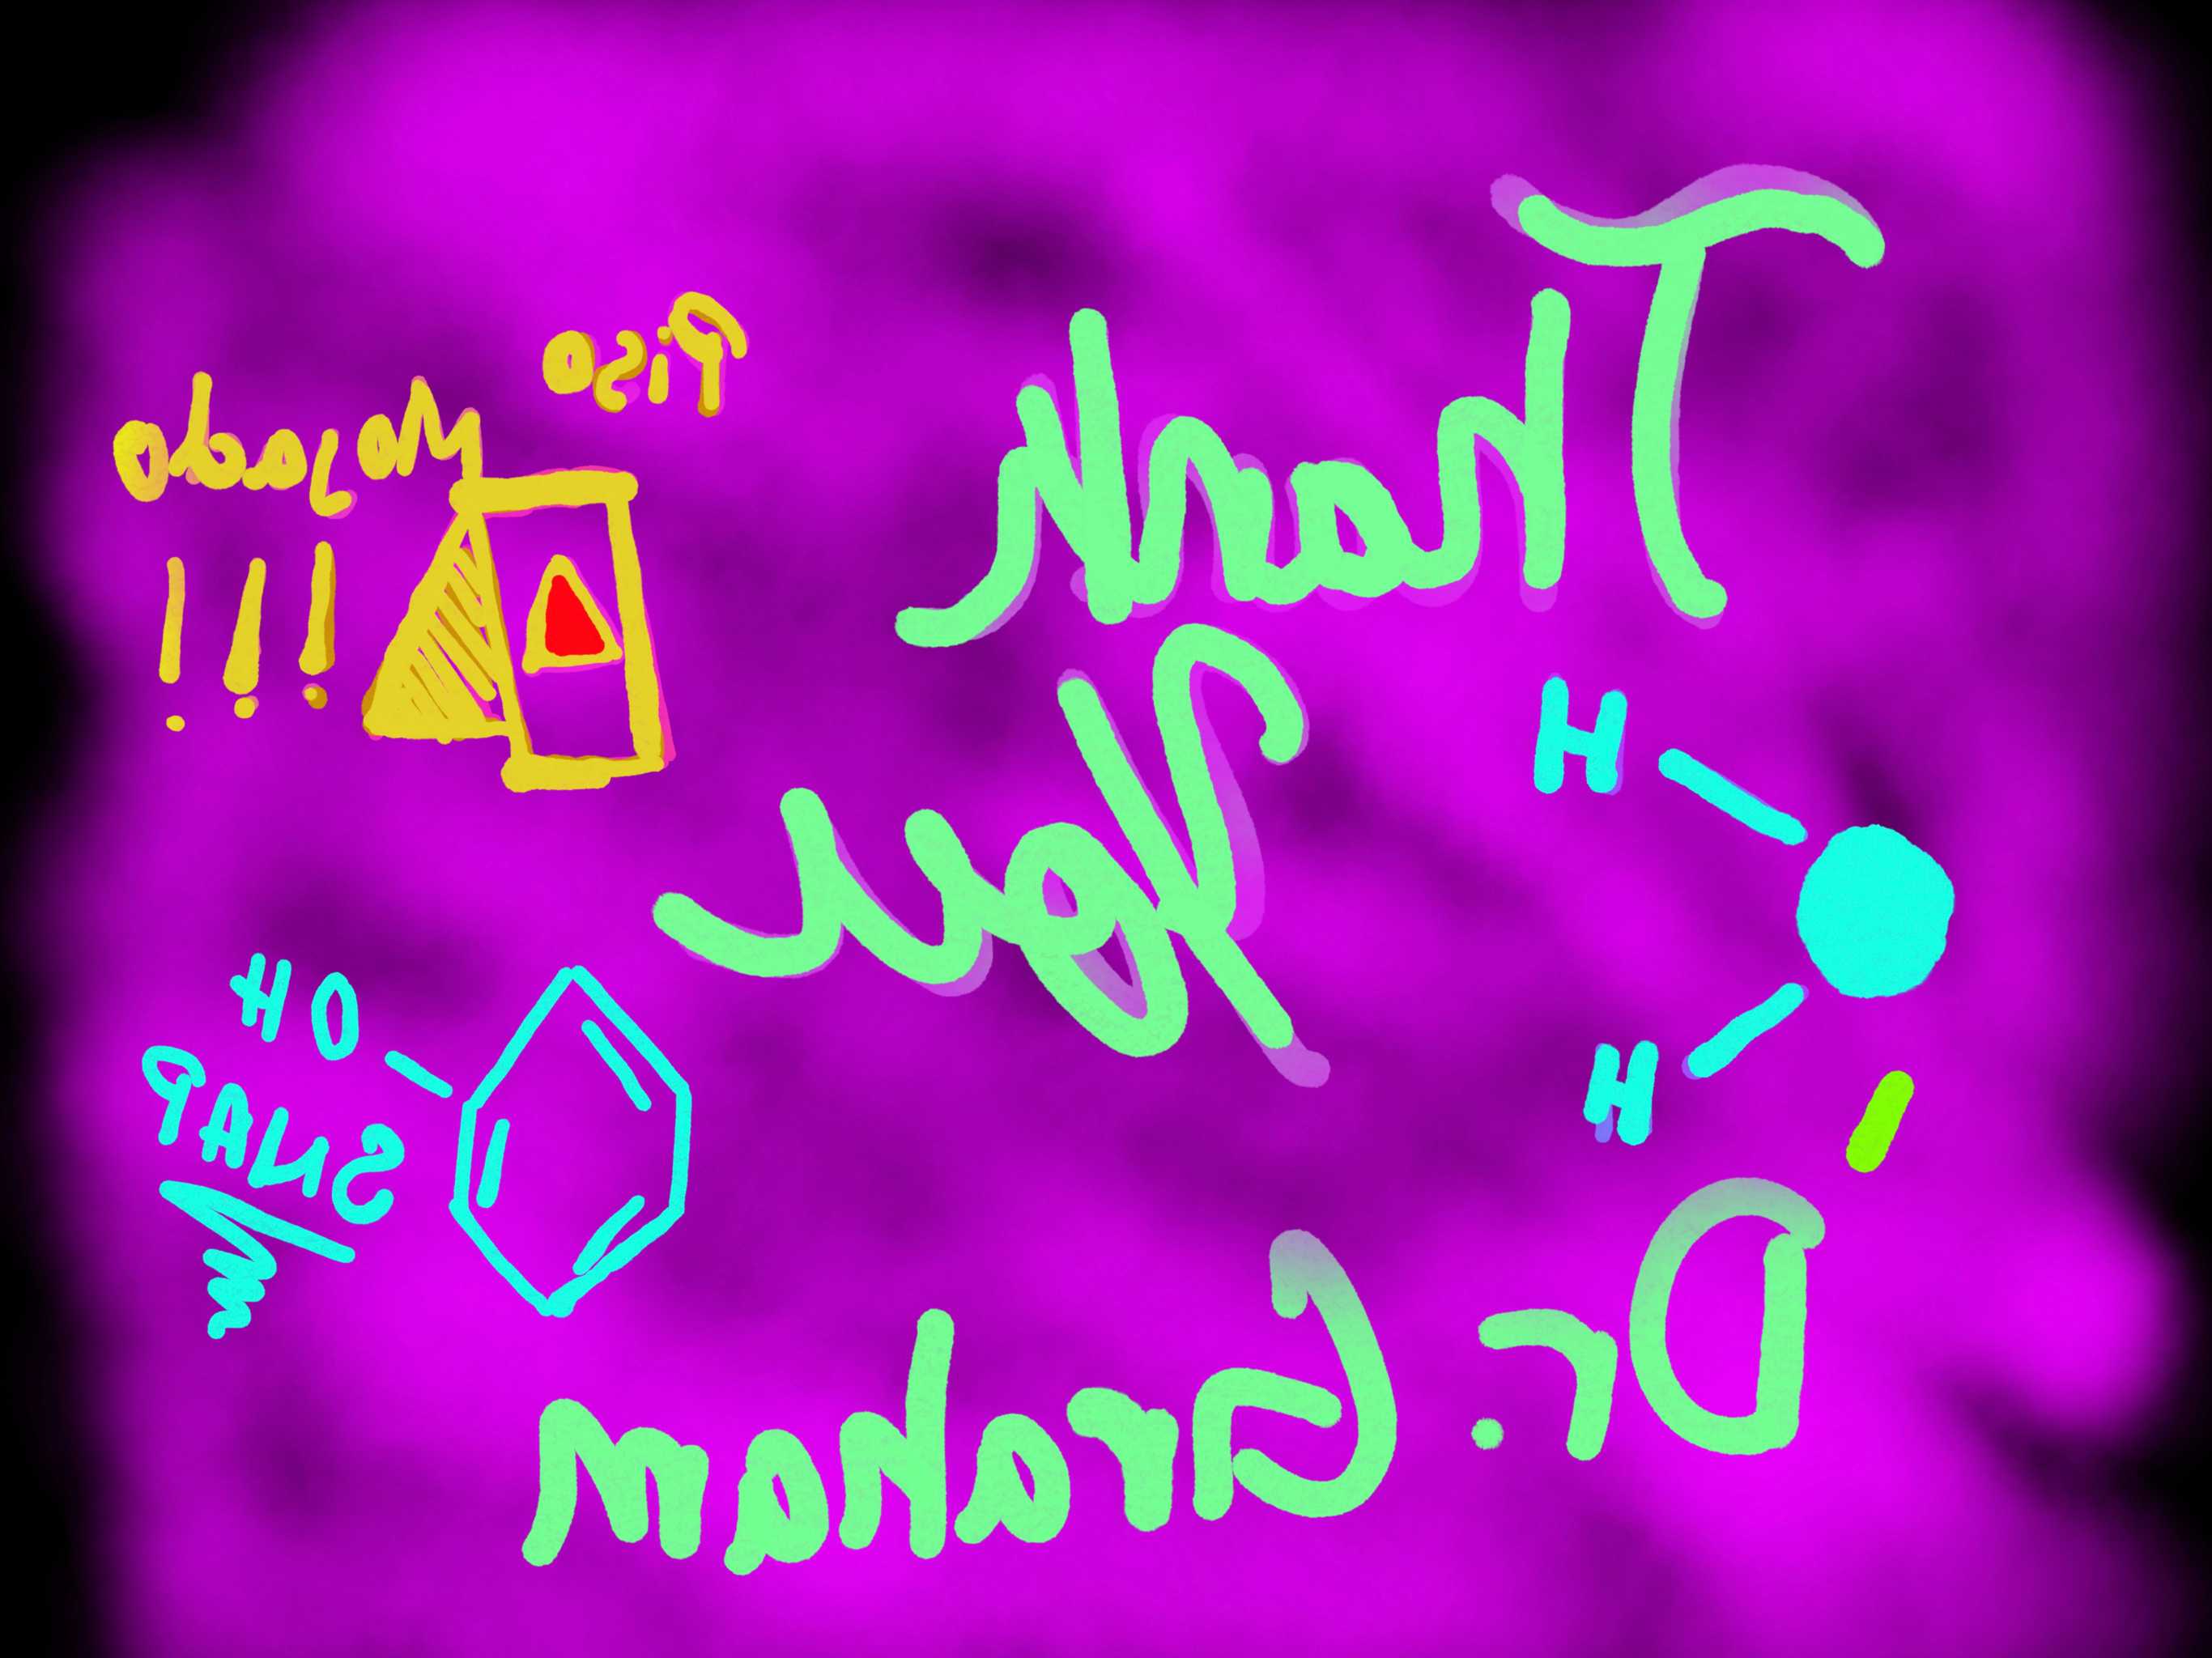 Thank
You
Dr. Graham
H
H
Piso
Mojado
!!!
OH
SNAP